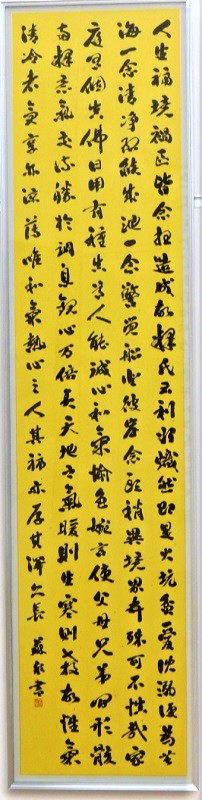 人生福境禍区皆念想造成故釋氏云利欲熾然即是火坑貪愛沈溺便為苦
海一念清净烈焰成池一念警覺船登彼岸念頭稍異境界頓殊可不慎哉家
庭有個真佛日用有種真道人能誠心和氣愉色婉言使父母兄弟間形骸
两釋意氣交流勝於調息觀心万倍矣天地之氣暖則生寒則殺故性氣
清冷者受享亦凉薄唯和氣熱心之人其福亦厚其澤亦長 蘇書